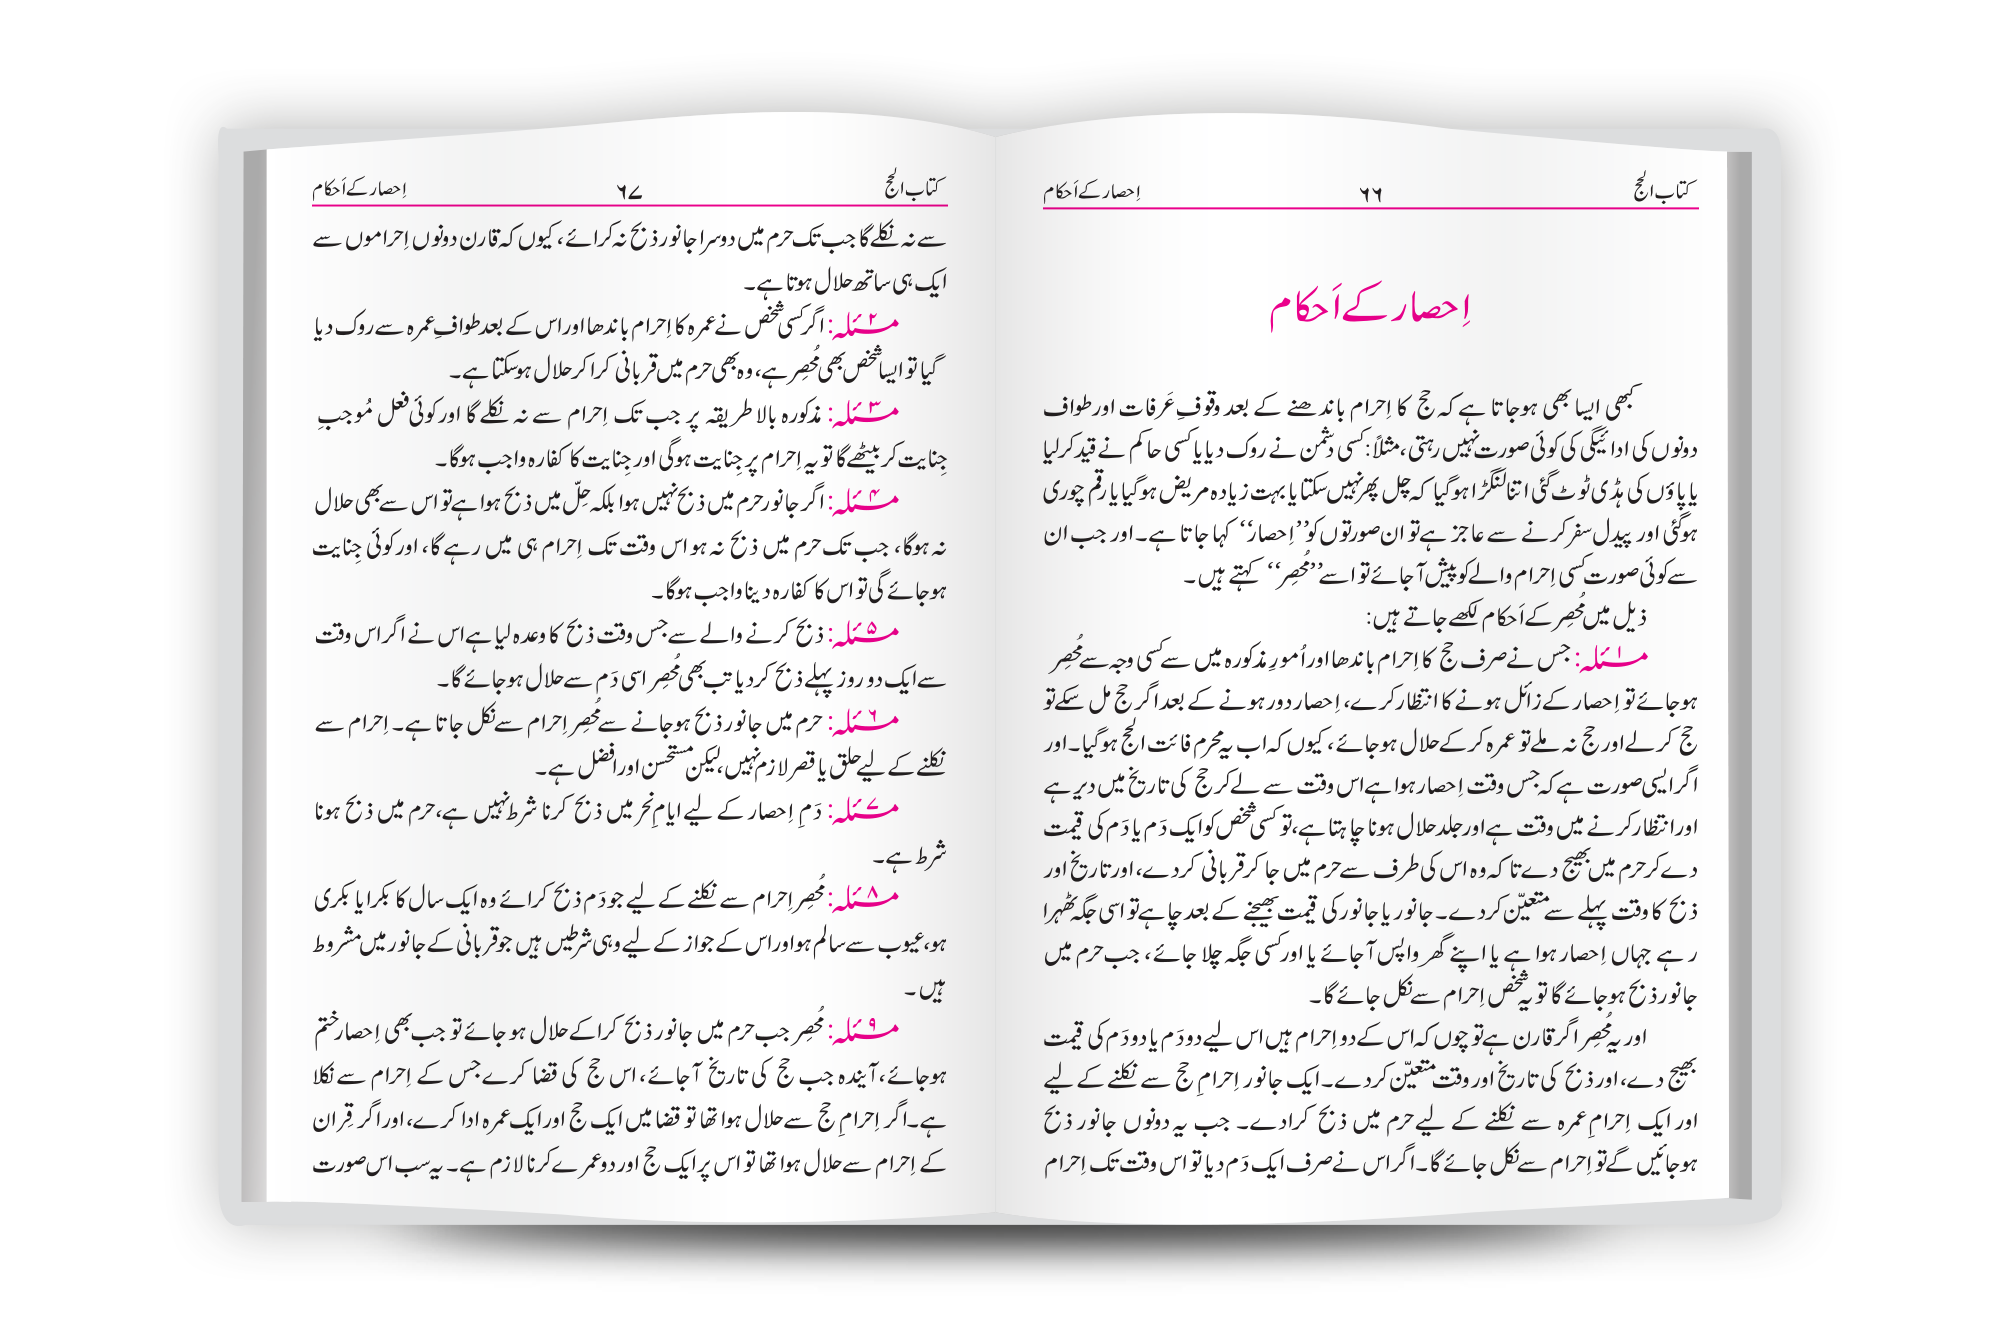 کتاب الحج ۶۶ اِحصار کے اَحکام
اِحصار کے اَحکام
کبھی ایسا بھی ہوجاتا ہے کہ حج کا اِحرام باندھنے کے بعد وقوفِ عَرفات اور طواف
دونوں کی ادائیگی کی کوئی صورت نہیں رہتی، مثلاً: کسی دشمن نے روک دیا یا کسی حاکم نے قید کرلیا
یا پاؤں کی ہڈی ٹوٹ گئی اتنا لنگڑا ہوگیا کہ چل پھر نہیں سکتا یا بہت زیادہ مریض ہوگیا یا رقم چوری
ہوگئی اور پیدل سفر کرنے سے عاجز ہے تو ان صورتوں کو ’’اِحصار‘‘ کہا جاتا ہے۔ اور جب ان
سے کوئی صورت کسی اِحرام والے کو پیش آجائے تو اسے ’’مُحصِر‘‘ کہتے ہیں۔
ذیل میں مُحصِر کے اَحکام لکھے جاتے ہیں:
مسئلہ۱: جس نے صرف حج کا اِحرام باندھا اور اُمورِ مذکورہ میں سے کسی وجہ سے مُحصِر
ہوجائے تو اِحصار کے زائل ہونے کا انتظار کرے، اِحصار دور ہونے کے بعد اگر حج مل سکے تو
حج کرلے اور حج نہ ملے تو عمرہ کرکے حلال ہوجائے، کیوں کہ اب یہ محرم فائت الحج ہوگیا۔ اور
اگر ایسی صورت ہے کہ جس وقت اِحصار ہوا ہے اس وقت سے لے کر حج کی تاریخ میں دیر ہے
اور انتظار کرنے میں وقت ہے اور جلد حلال ہونا چاہتا ہے، تو کسی شخص کو ایک دَم یا دَم کی قیمت
دے کر حرم میں بھیج دے تاکہ وہ اس کی طرف سے حرم میں جاکر قربانی کردے، اور تاریخ اور
ذبح کا وقت پہلے سے متعیّن کردے۔ جانور یا جانور کی قیمت بھیجنے کے بعد چاہے تو اسی جگہ ٹھہرا
رہے جہاں اِحصار ہوا ہے یا اپنے گھر واپس آجائے یا اور کسی جگہ چلا جائے، جب حرم میں
جانور ذبح ہوجائے گا تو یہ شخص اِحرام سے نکل جائے گا۔
اور یہ مُحصِر اگر قارن ہے تو چوں کہ اس کے دو اِحرام ہیں اس لیے دو دَم یا دو دَم کی قیمت
بھیج دے، اور ذبح کی تاریخ اور وقت متعیّن کردے۔ ایک جانور اِحرامِ حج سے نکلنے کے لیے
اور ایک اِحرامِ عمرہ سے نکلنے کے لیے حرم میں ذبح کرادے۔ جب یہ دونوں جانور ذبح
ہوجائیں گے تو اِحرام سے نکل جائے گا۔ اگر اس نے صرف ایک دَم دیا تو اس وقت تک اِحرام
کتاب الحج ۶۷ اِحصار کے اَحکام
سے نہ نکلے گا جب تک حرم میں دوسرا جانور ذبح نہ کرائے، کیوں کہ قارن دونوں اِحراموں سے
ایک ہی ساتھ حلال ہوتا ہے۔
مسئلہ۲: اگر کسی شخص نے عمرہ کا اِحرام باندھا اور اس کے بعد طوافِ عمرہ سے روک دیا
گیا تو ایسا شخص بھی مُحصِر ہے، وہ بھی حرم میں قربانی کراکر حلال ہوسکتا ہے۔
مسئلہ۳: مذکورہ بالا طریقہ پر جب تک اِحرام سے نہ نکلے گا اور کوئی فعل مُوجبِ
جِنایت کر بیٹھے گا تو یہ اِحرام پر جِنایت ہوگی اور جِنایت کا کفارہ واجب ہوگا۔
مسئلہ۴: اگر جانور حرم میں ذبح نہیں ہوا بلکہ حِلّ میں ذبح ہوا ہے تو اس سے بھی حلال
نہ ہوگا، جب تک حرم میں ذبح نہ ہو اس وقت تک اِحرام ہی میں رہے گا، اور کوئی جِنایت
ہوجائے گی تو اس کا کفارہ دینا واجب ہوگا۔
مسئلہ۵: ذبح کرنے والے سے جس وقت ذبح کا وعدہ لیا ہے اس نے اگر اس وقت
سے ایک دو روز پہلے ذبح کردیا تب بھی مُحصِر اسی دَم سے حلال ہوجائے گا۔
مسئلہ۶: حرم میں جانور ذبح ہوجانے سے مُحصِر اِحرام سے نکل جاتا ہے۔ اِحرام سے
نکلنے کے لیے حلق یا قصر لازم نہیں، لیکن مستحسن اور افضل ہے۔
مسئلہ۷: دَمِ اِحصار کے لیے ایامِ نحر میں ذبح کرنا شرط نہیں ہے، حرم میں ذبح ہونا
شرط ہے۔
مسئلہ۸: مُحصِر اِحرام سے نکلنے کے لیے جو دَم ذبح کرائے وہ ایک سال کا بکرا یا بکری
ہو، عیوب سے سالم ہو اور اس کے جواز کے لیے وہی شرطیں ہیں جو قربانی کے جانور میں مشروط
ہیں۔
مسئلہ۹: مُحصِر جب حرم میں جانور ذبح کراکے حلال ہوجائے تو جب بھی اِحصار ختم
ہوجائے، آیندہ جب حج کی تاریخ آجائے، اس حج کی قضا کرے جس کے اِحرام سے نکلا
ہے۔ اگر اِحرامِ حج سے حلال ہوا تھا تو قضا میں ایک حج اور ایک عمرہ ادا کرے، اور اگر قِران
کے اِحرام سے حلال ہوا تھا تو اس پر ایک حج اور دو عمرے کرنا لازم ہے۔ یہ سب اس صورت